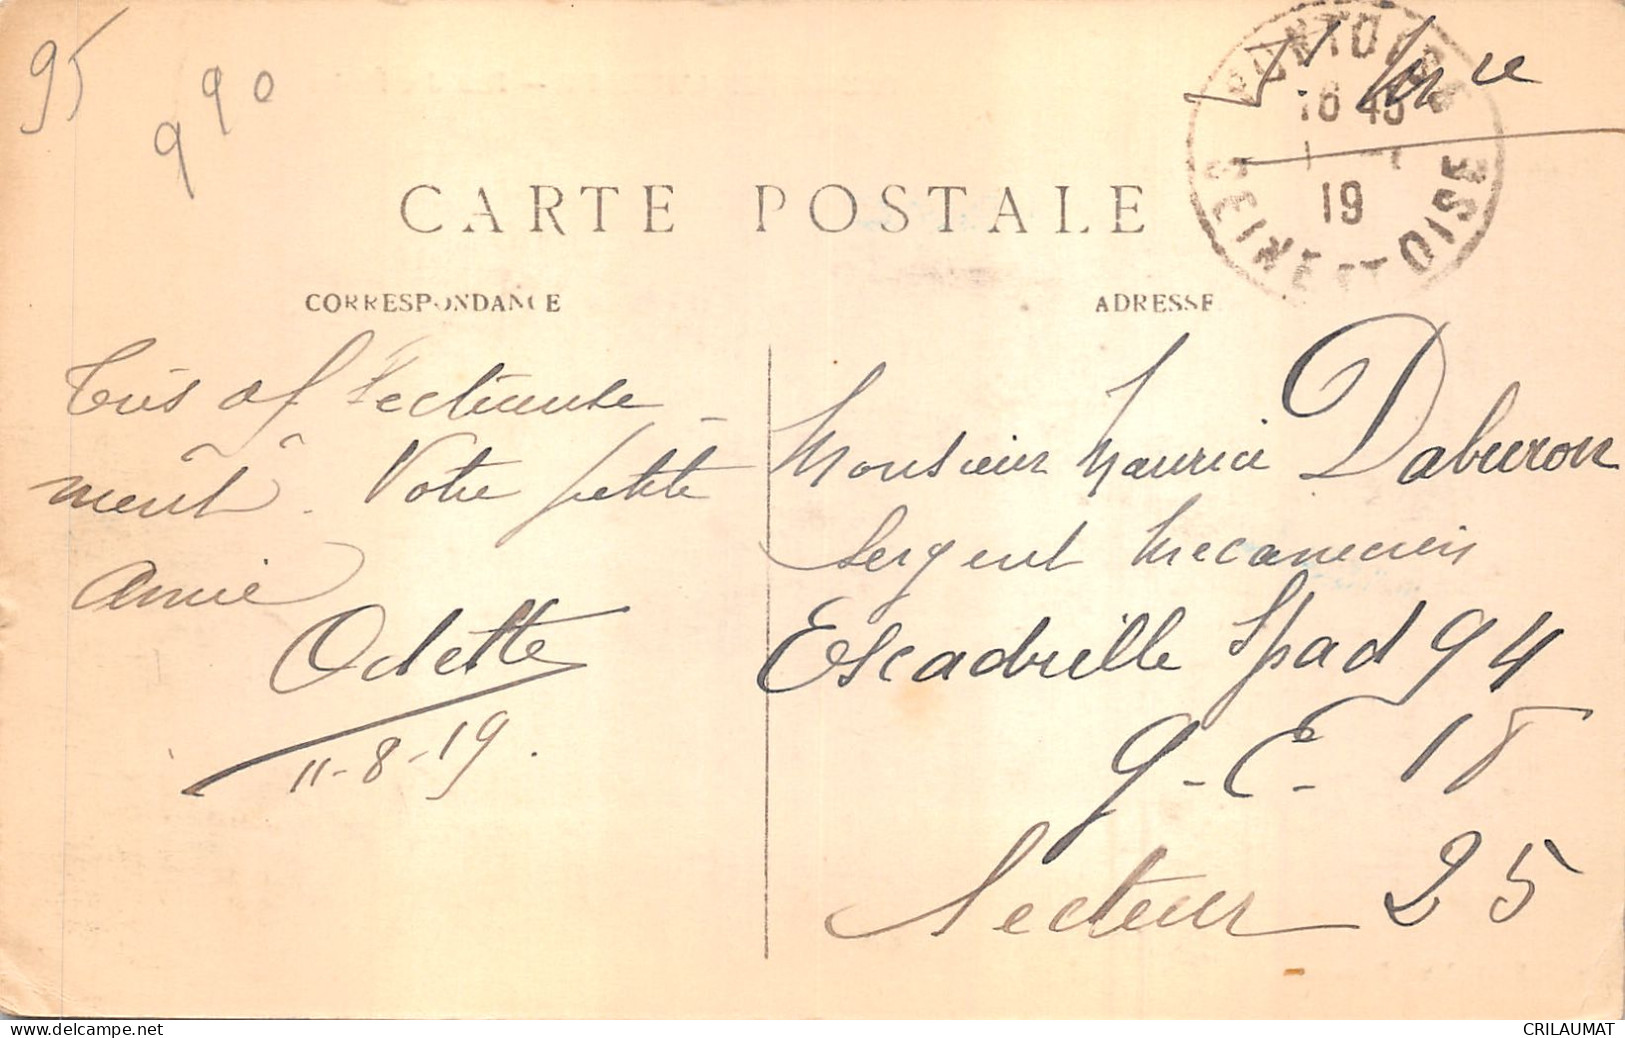 95
990
PONTOISE
16 45
19
SEINE ET OISE
CARTE POSTALE
CORRESPONDANCE
ADRESSE
Très affectueuse-
ment. Votre petite
Amie
Odette
11-8-19.
Monsieur Maurice Daburon
Sergent Mecanicien
Escadrille Spad 94
G-C- 18
Secteur 25
CRILAUMAT